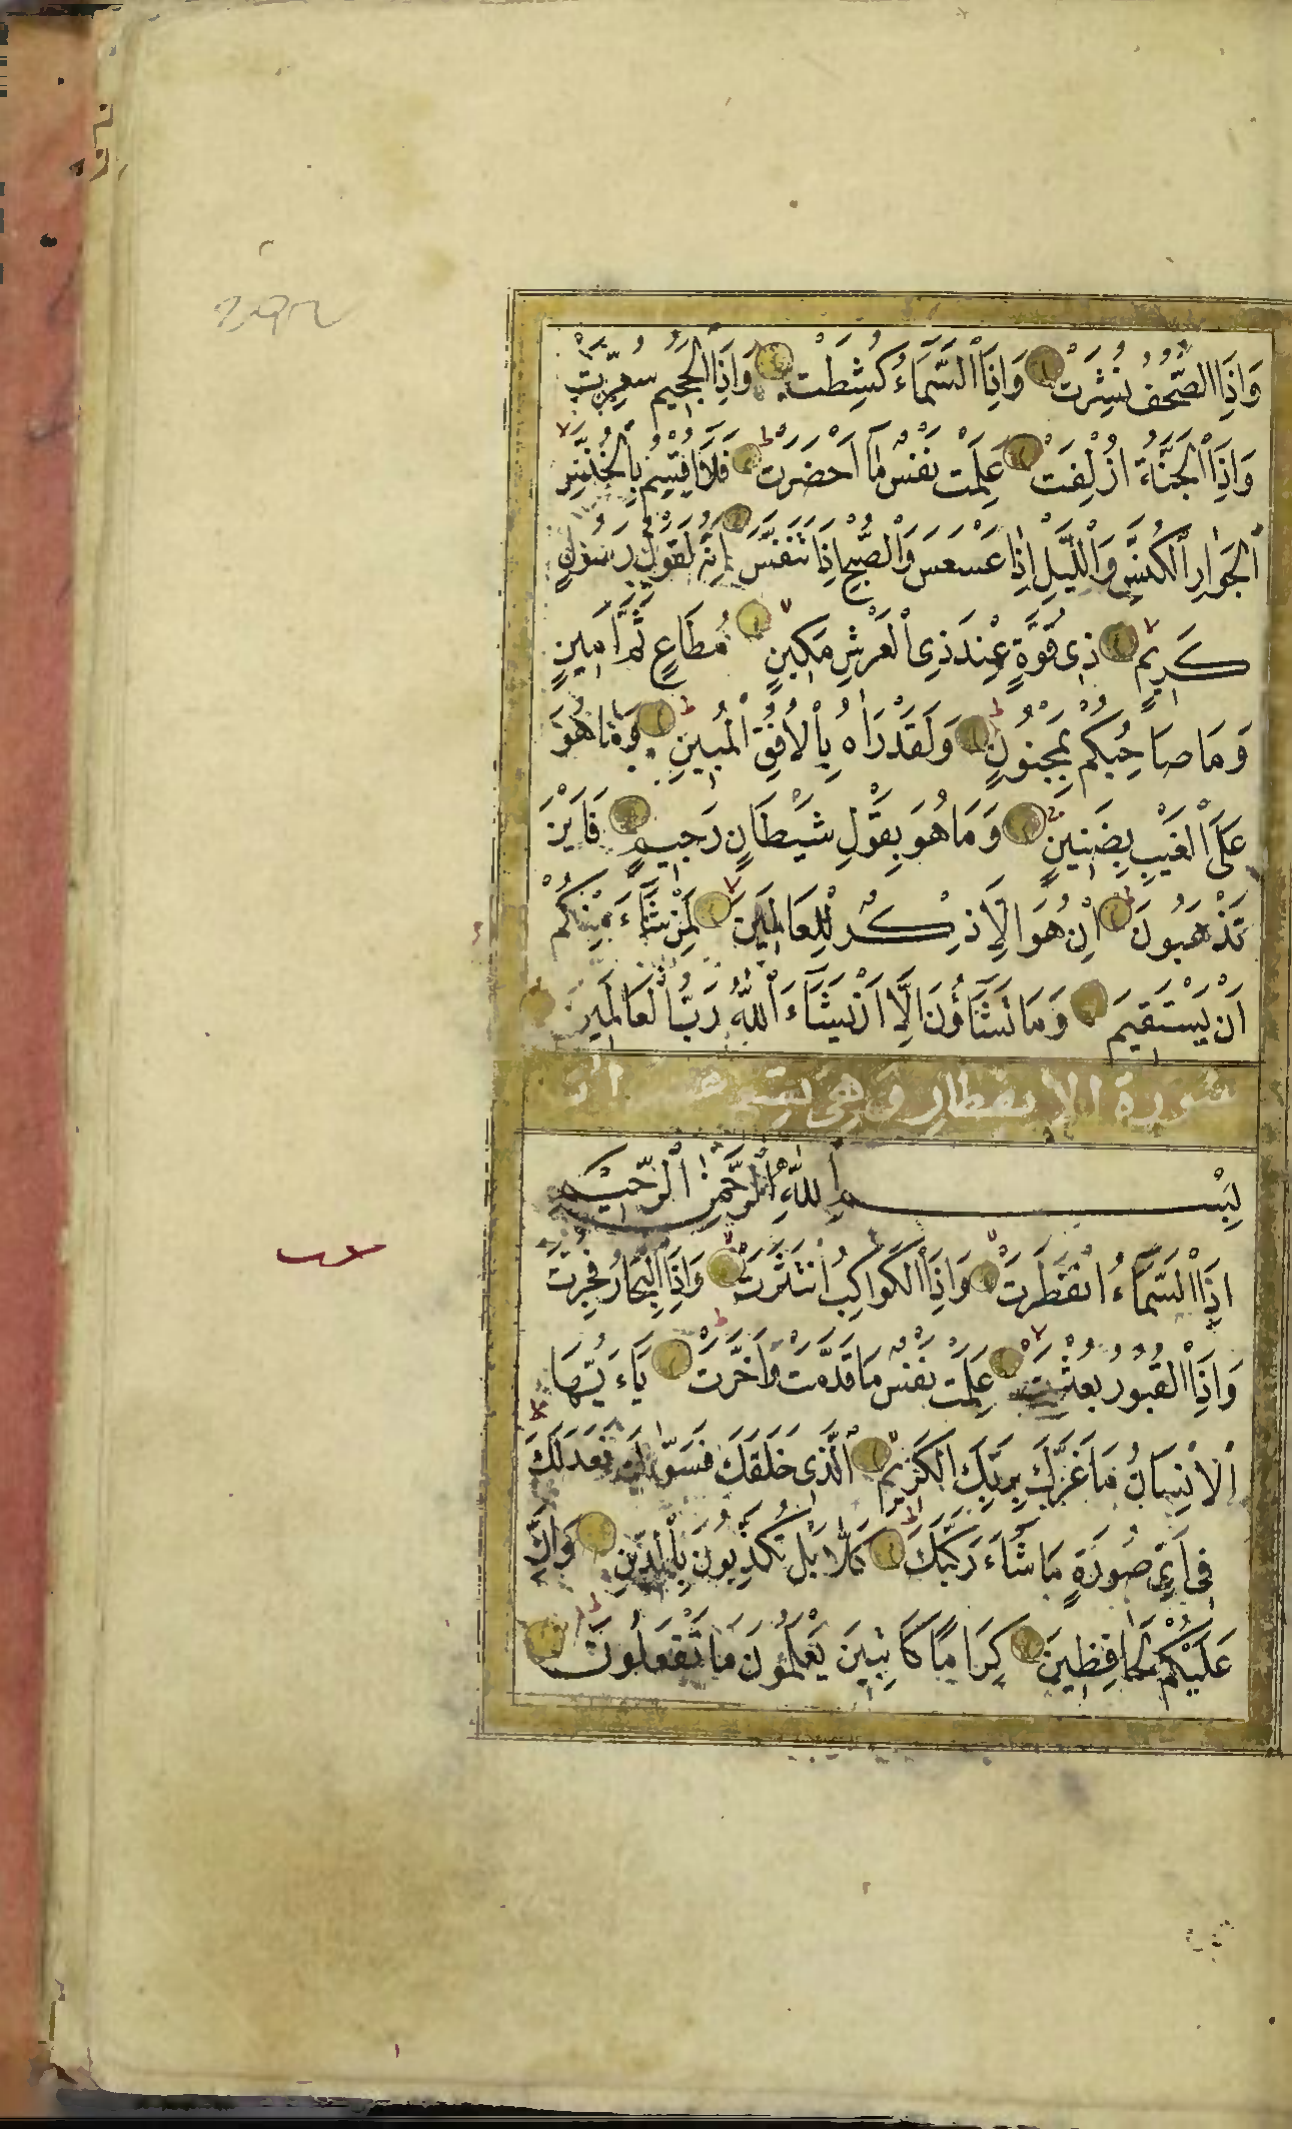 وَاِذَا الصُّحُفُ نُشِرَتْ وَاِذَا السَّمَاءُ كُشِطَتْ وَاِذَا الْجَحِيمُ سُعِّرَتْ
وَاِذَا الْجَنَّةُ اُزْلِفَتْ عَلِمَتْ نَفْسٌ مَا اَحْضَرَتْ فَلَا اُقْسِمُ بِالْخُنَّسِ
اَلْجَوَارِ الْكُنَّسِ وَالَّيْلِ اِذَا عَسْعَسَ وَالصُّبْحِ اِذَا تَنَفَّسَ اِنَّهُ لَقَوْلُ رَسُولٍ
كَرِيمٍ ذِى قُوَّةٍ عِنْدَ ذِى الْعَرْشِ مَكِينٍ مُطَاعٍ ثَمَّ اَمِينٍ
وَمَا صَاحِبُكُمْ بِمَجْنُونٍ وَلَقَدْ رَاٰهُ بِالْاُفُقِ الْمُبِينِ وَمَا هُوَ
عَلَى الْغَيْبِ بِضَنِينٍ وَمَا هُوَ بِقَوْلِ شَيْطَانٍ رَجِيمٍ فَاَيْنَ
تَذْهَبُونَ اِنْ هُوَ اِلَّا ذِكْرٌ لِلْعَالَمِينَ لِمَنْ شَاءَ مِنْكُمْ
اَنْ يَسْتَقِيمَ وَمَا تَشَاؤُنَ اِلَّا اَنْ يَشَاءَ اللّٰهُ رَبُّ الْعَالَمِينَ
سورة الانفطار وهى تسع عشر اية
بِسْمِ اللّٰهِ الرَّحْمٰنِ الرَّحِيمِ
اِذَا السَّمَاءُ انْفَطَرَتْ وَاِذَا الْكَوَاكِبُ انْتَثَرَتْ وَاِذَا الْبِحَارُ فُجِّرَتْ
وَاِذَا الْقُبُورُ بُعْثِرَتْ عَلِمَتْ نَفْسٌ مَا قَدَّمَتْ وَاَخَّرَتْ يَاءَيُّهَا
الْاِنْسَانُ مَا غَرَّكَ بِرَبِّكَ الْكَرِيمِ اَلَّذِى خَلَقَكَ فَسَوّٰىكَ فَعَدَلَكَ
فِى اَىِّ صُورَةٍ مَا شَاءَ رَكَّبَكَ كَلَّا بَلْ تُكَذِّبُونَ بِالدِّينِ وَاِنَّ
عَلَيْكُمْ لَحَافِظِينَ كِرَامًا كَاتِبِينَ يَعْلَمُونَ مَا تَفْعَلُونَ